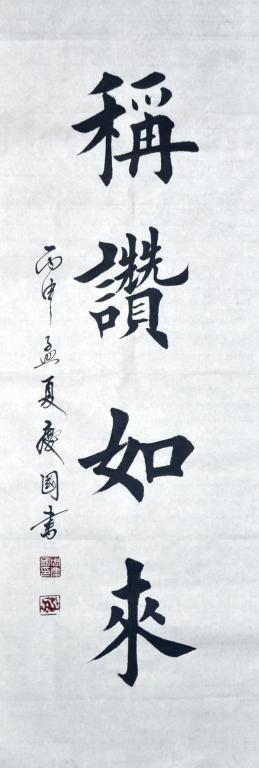 稱讚如來
丙申孟夏慶國書